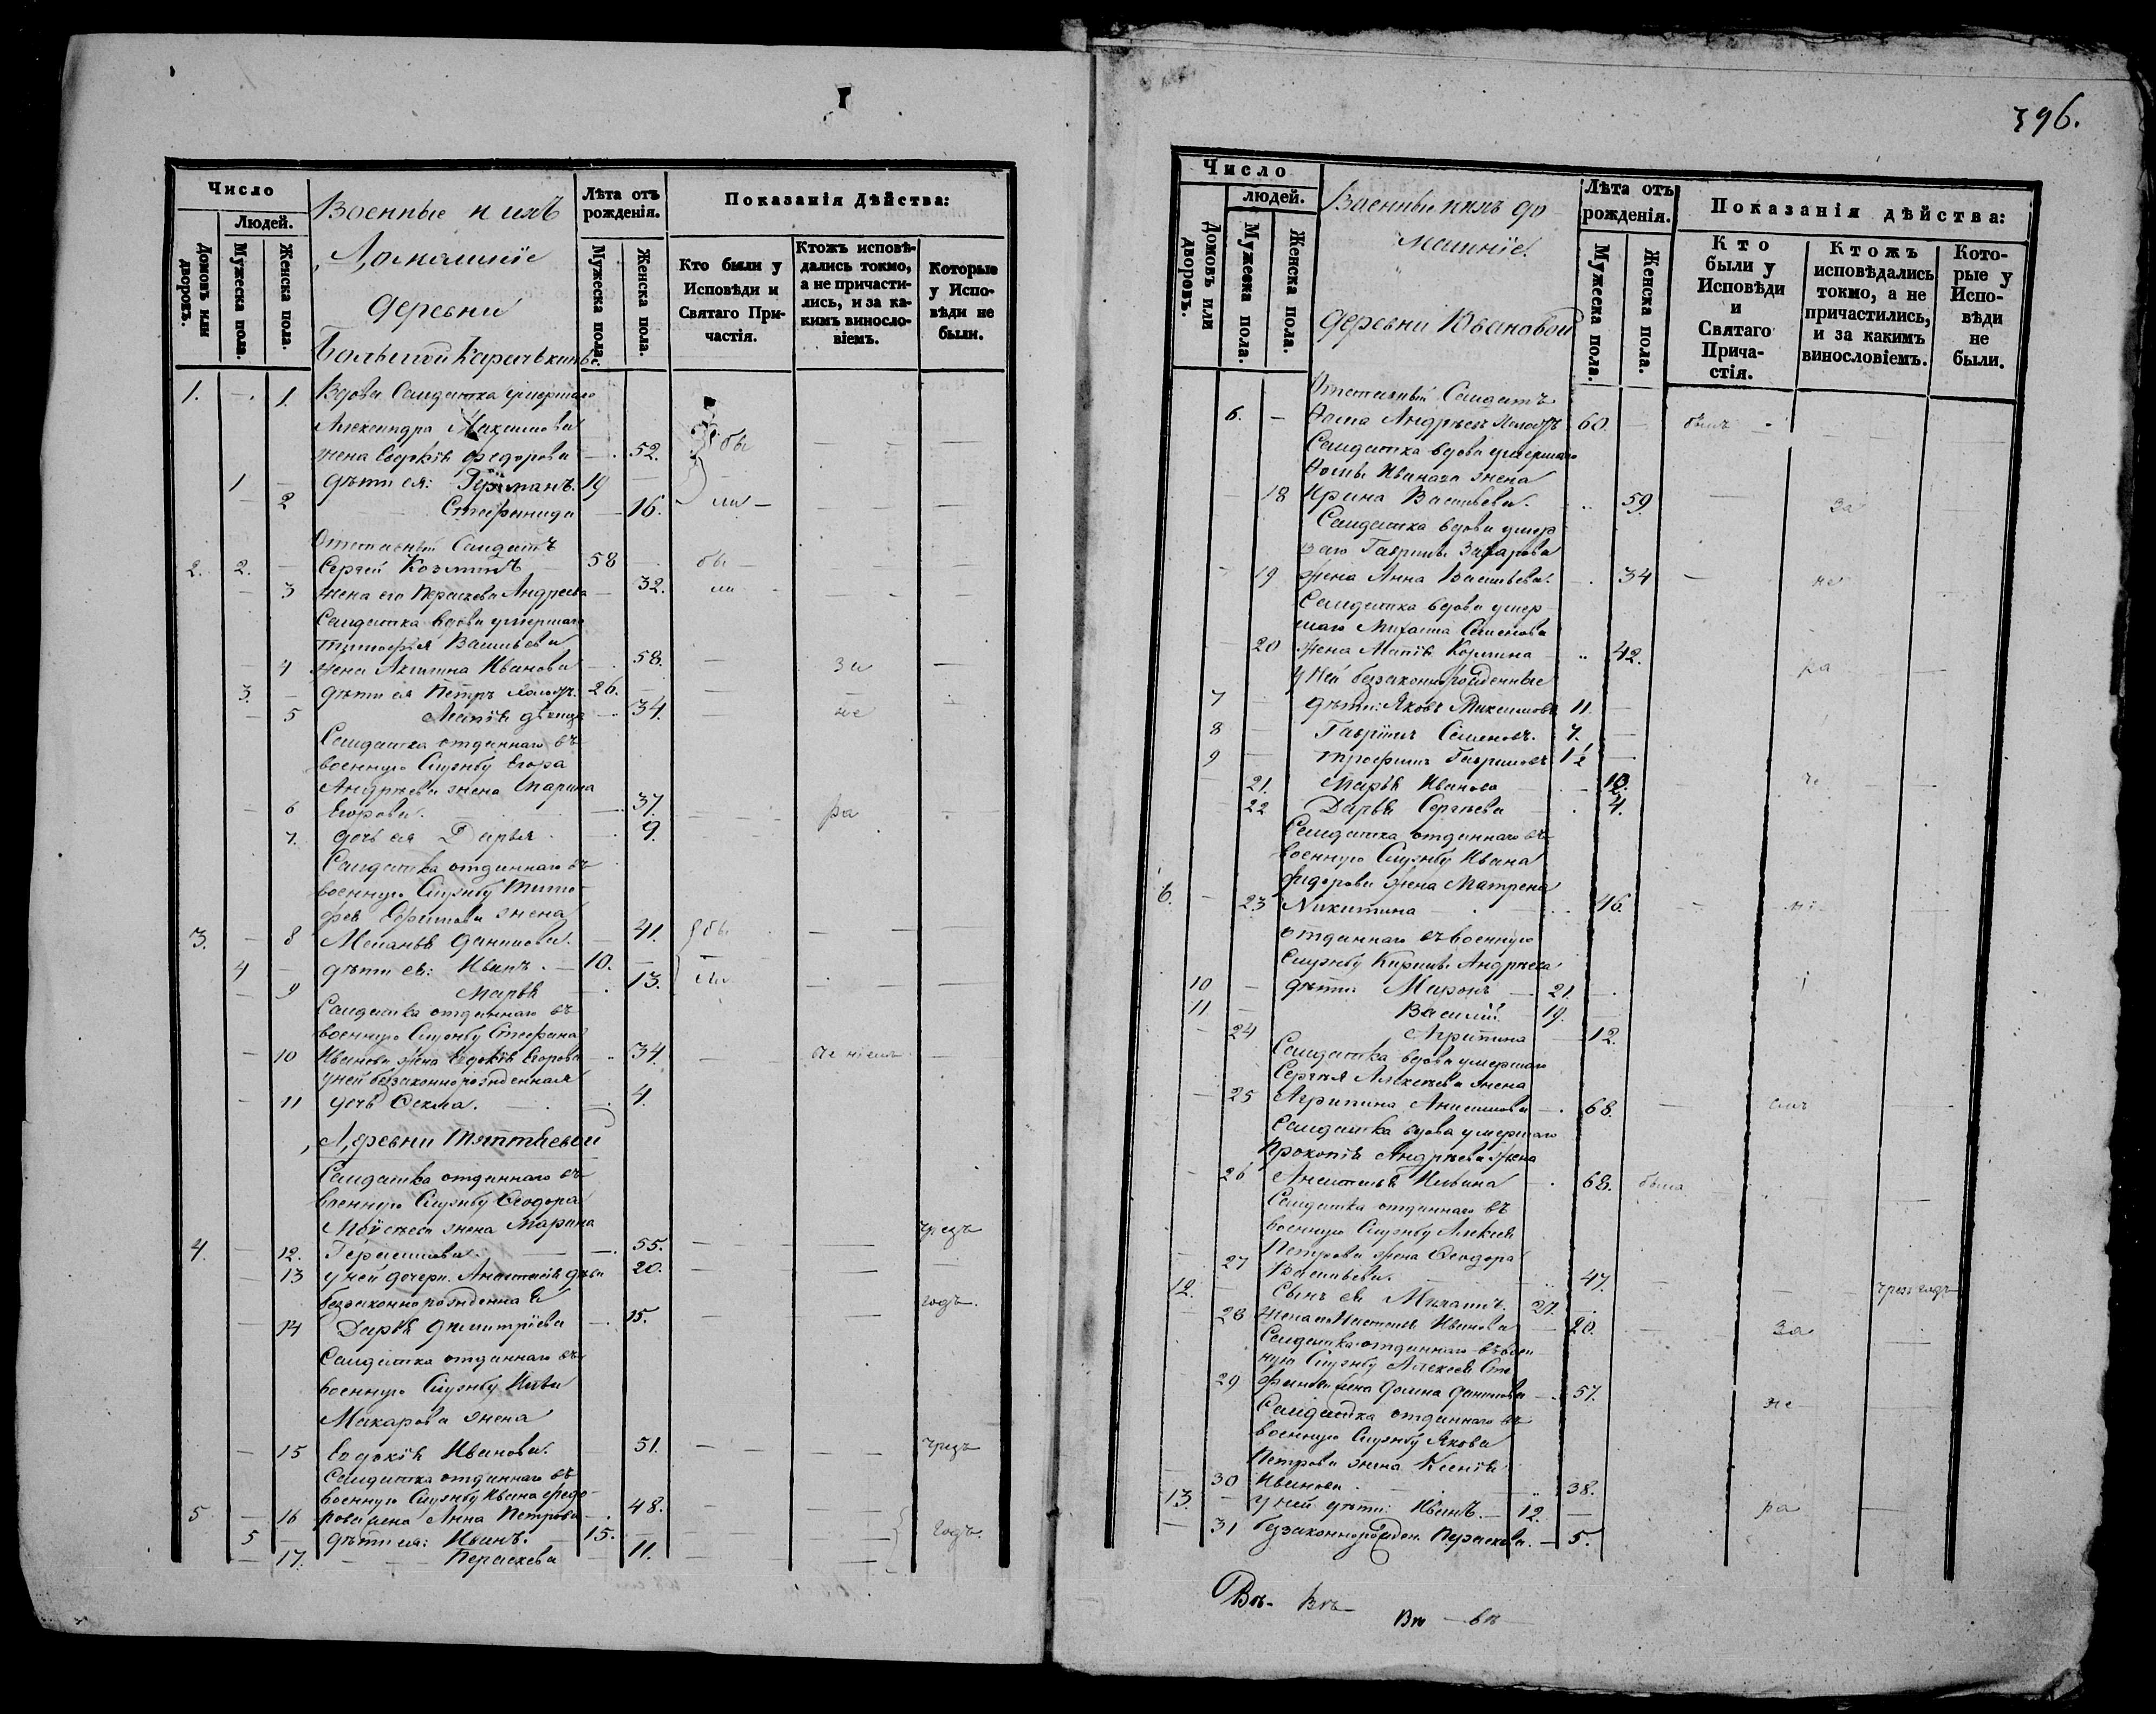 Число
Людей.
Домовъ или дворовъ.
Мужеска пола.
Женска пола.
Военные и ихъ
Домашніе
деревни
Большой
Лѣта отъ рожденія.
Мужеска пола.
Женска пола.
Показанія Дѣйства:
Кто были у Исповѣди и Святаго Причастія.
Ктожъ исповѣдались токмо, а не причастились, и за какимъ винословіемъ.
Которые у Исповѣди не были.
1. 1. Вдова Солдатка умершаго
Александра Максимова
жена Евдокія Федорова 52. бы
1 дѣти ея: Германъ. 19
2 Стефанида 16. ли
Отставный Солдатъ
2. 2. Сергей Козминъ 58 бы
3 жена его Параскева Андреева 32. ли
Солдатка вдова умершаго
Тимофея Васильева
4 жена Акилина Иванова 58. за
3. дѣти ея Петръ холостъ. 26.
5 дѣвица 34. не
Солдатка отданнаго въ
военную Службу Егора
Андреева жена Марина
6 Егорова. 37. ра
7. дочь ея Дарья 9.
Солдатка отданнаго въ
военную Службу Тимо-
фея Ефимова жена
3. 8 Меланья Данилова. 41. бы
4 дѣти ея: Иванъ. 10.
9 Марья 13. ли
Солдатка отданнаго въ
военную Службу Стефана
10 Иванова жена Евдокія Егорова 34.
у ней беззаконнорожденная
11 дочь Фекла. 4.
Деревни
Солдатка отданнаго въ
военную Службу Феодора
Моѵсеева жена Марина чрезъ
4. 12. Герасимова. 55.
13 у ней дочери. Анастасія дѣви 20.
беззаконнорожденная годъ.
14 Дарья Димитріева 15.
Солдатка отданнаго въ
военную Службу Ильи
Макарова жена
15 Евдокія Иванова. 51. чрезъ
Солдатка отданнаго въ
военную Службу Ивана Федо-
5 16 рова жена Анна Петрова 48.
5 дѣти ея: Иванъ. 15. годъ.
17. Параскева 11.
396.
Число
людей.
Домовъ или дворовъ.
Мужеска пола.
Женска пола.
Военные и ихъ до
машніе.
деревни Ивановой
Лѣта отъ рожденія.
Мужеска пола.
Женска пола.
Показанія дѣйства:
Кто были у Исповѣди и Святаго Причастія.
Ктожъ исповѣдались токмо, а не причастились, и за какимъ винословіемъ.
Которые у Исповѣди не были.
Отставный Солдатъ
6. Фома Андреевъ холостъ 60. былъ
Солдатка вдова умершаго
Фомы Иванова жена
18 Ирина Васильева. 59. за
Солдатка вдова умер
шаго Гаврилы Захарова
19 жена Анна Васильева. 34 не
Солдатка вдова умер
шаго Михаила Семенова
20 жена 42. ра
у ней беззаконнорожденные
7 дѣти: Яковъ Максимовъ 11.
8 Гавріилъ Семеновъ. 7.
9 Трофимъ Гавриловъ 1½
21. Марья Иванова
22 Дарья Сергеева 4.
Солдатка отданнаго въ
военную Службу Ивана
Федорова жена Матрена
6. 23 Никитина 46.
отданнаго въ военную
Службу Кирилы Андреева
10 дѣти: Миронъ 21.
11 Василій 19.
24 Агрипина 12.
Солдатка вдова умершаго
Сергея Алексеева жена
25 Агрипина Анисимова 68.
Солдатка вдова умершаго
Прокопія Андреева жена
26 Анастасія Ильина 68. была
Солдатка отданнаго въ
военную Службу Алексея
Петрова жена Феодора
27 Васильева. 47.
12. Сынъ ея 27. чрезъ годъ
28 жена его Иванова 20. за
Солдатка отданнаго въ воен
ную Службу Алексея Сте
29 фанова жена Данилова 57. не
Солдатка отданнаго въ
военную Службу Якова
Петрова жена Ксенія
30 Иванова 38.
13. у ней дѣти: Иванъ. 12. ра
31 беззаконнорожден. Параскева. 5.